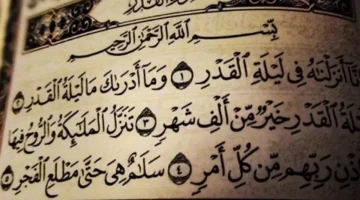 بِسْمِ ٱللَّهِ ٱلرَّحْمَٰنِ ٱلرَّحِيمِ
نَّآ أَنزَلْنَٰهُ فِى لَيْلَةِ ٱلْقَدْرِ ١ وَمَآ أَدْرَىٰكَ مَا لَيْلَةُ ٱلْقَدْرِ ٢
لَةُ ٱلْقَدْرِ خَيْرٌ مِّنْ أَلْفِ شَهْرٍ ٣ تَنَزَّلُ ٱلْمَلَٰٓئِكَةُ وَٱلرُّوحُ فِيهَا
ذْنِ رَبِّهِم مِّن كُلِّ أَمْرٍ ٤ سَلَٰمٌ هِىَ حَتَّىٰ مَطْلَعِ ٱلْفَجْرِ ٥